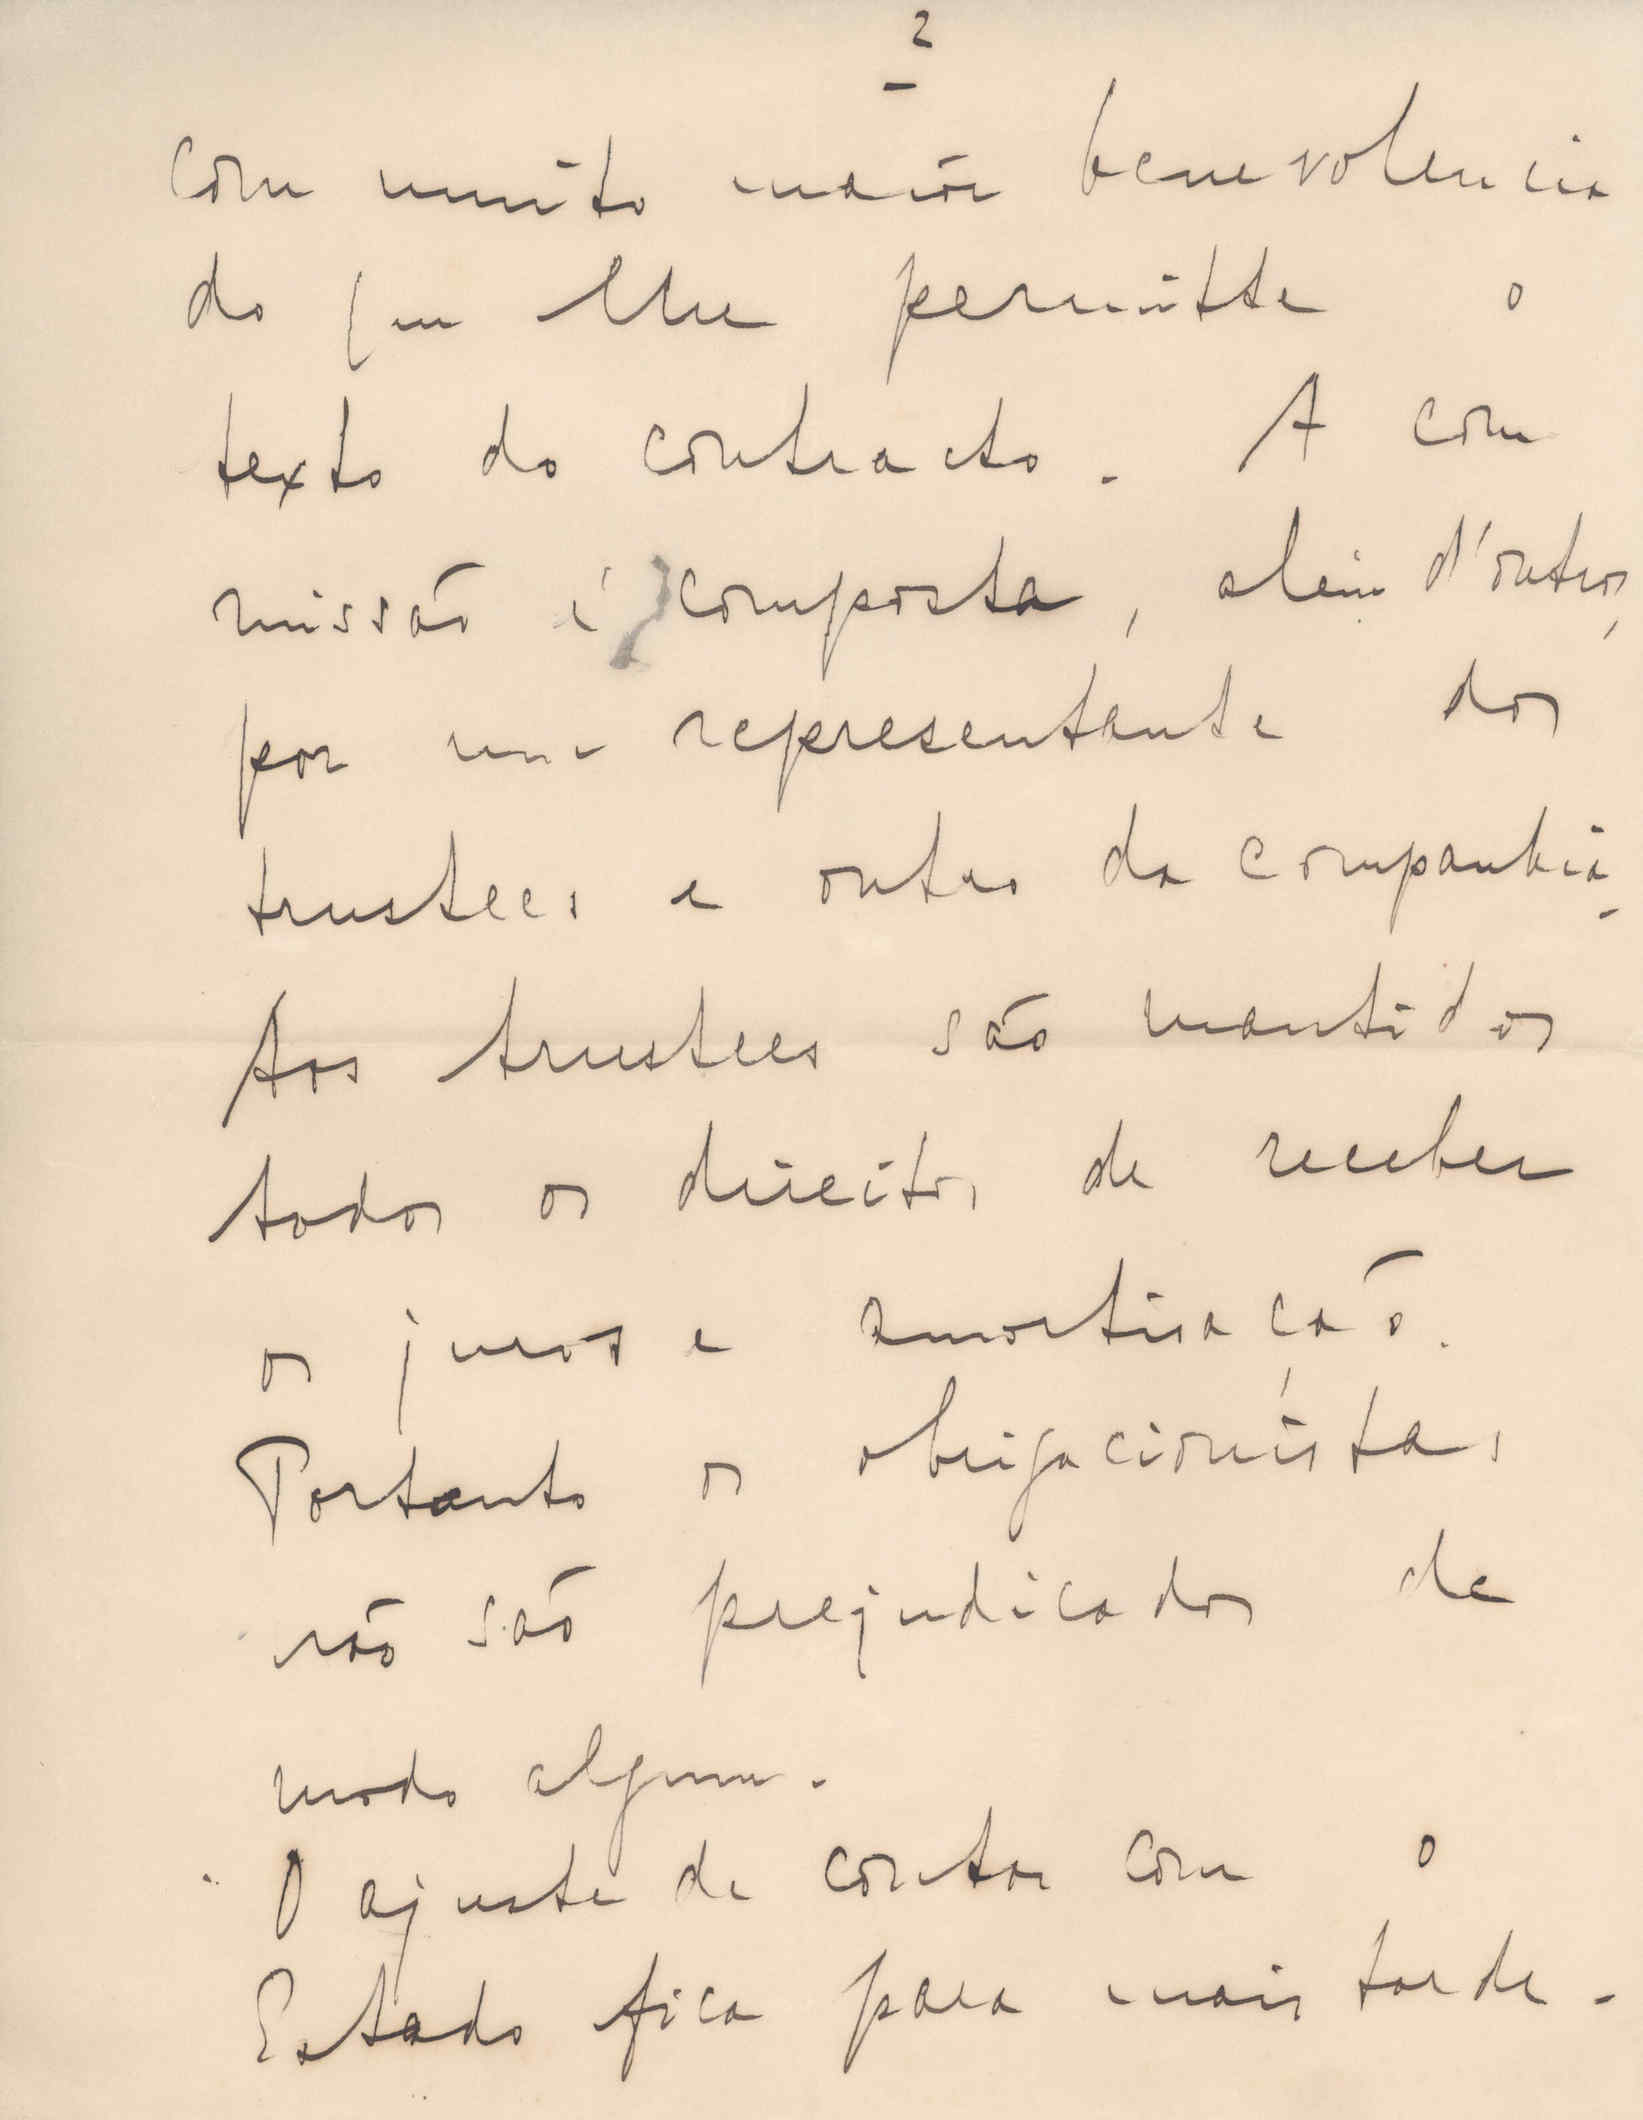 2
com muito maior benevolencia
do que lhe permitte o
texto do contracto. A com
missão é composta, alem d'outros,
por um representante dos
trustees e outro da companhia.
Aos trustees são mantidos
todos os direitos de receber
os juros e amortisação.
Portanto os obrigacionistas
não são prejudicados de
modo algum.
O ajuste de contas com o
Estado fica para mais tarde.